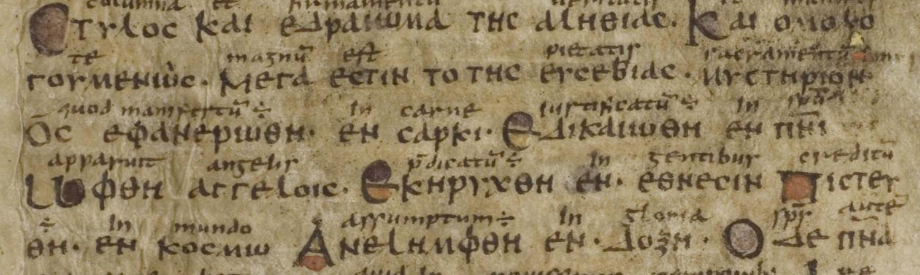 columna et firmamentum ueritatis
CTΥΛΟC ΚΑΙ ΕΔΡΑΙΩΜΑ ΤΗC ΑΛΗΘΙΑC. ΚΑΙ ΟΜΟΛΟ
te magnū est pietatis sacramentū
ΓΟΡΜΕΝΙΩC. ΜΕΓΑ ΕCΤΙΝ ΤΟ ΤΗC ΕΥCΕΒΙΑC. ΜΥCΤΗΡΙΟΝ
quod manifestū ÷ In carne Iustificatū ÷ In
ΟC ΕΦΑΝΕΡΩΘΗ. ΕΝ CΑΡΚΙ. ΕΔΙΚΑΙΩΘΗ ΕΝ Π̅Ν̅Ι
apparuit angelis p̄dicatū ÷ In gentibus creditū
ΩΦΘΗ ΑΓΓΕΛΟΙC. ΕΚΗΡΥΧΘΗ ΕΝ. ΕΘΝΕCΙΝ ΠΙCΤΕΥ
In mundo assumptum ÷ In gloria sp̄s autē
ΘΗ. ΕΝ ΚΟCΜΩ ΑΝΕΛΗΜΦΘΗ ΕΝ. ΔΟΞΗ. Ο ΔΕ Π̅Ν̅Α